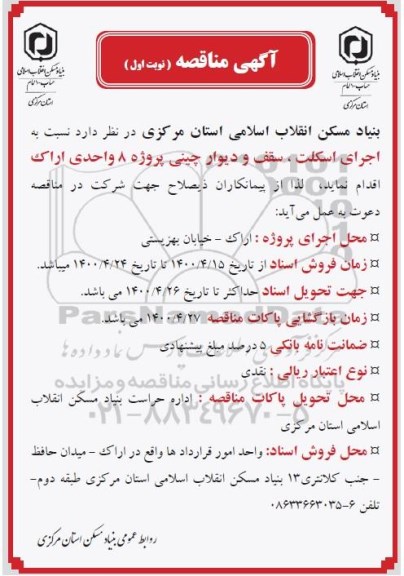 آگهی مناقصه ( نوبت اول )
بنیاد مسکن انقلاب اسلامی
استان مرکزی
بنیاد مسکن انقلاب اسلامی
استان مرکزی
بنیاد مسکن انقلاب اسلامی استان مرکزی در نظر دارد نسبت به
اجرای اسکلت ، سقف و دیوار چینی پروژه ۸ واحدی اراک
اقدام نماید، لذا از پیمانکاران ذیصلاح جهت شرکت در مناقصه
دعوت به عمل می‌آید:
¤ محل اجرای پروژه : اراک - خیابان بهزیستی
¤ زمان فروش اسناد از تاریخ ۱۴۰۰/۴/۱۵ تا تاریخ ۱۴۰۰/۴/۲۴ میباشد.
¤ جهت تحویل اسناد حداکثر تا تاریخ ۱۴۰۰/۴/۲۶ می باشد.
¤ زمان بازگشایی پاکات مناقصه ۱۴۰۰/۴/۲۷ می باشد.
¤ ضمانت نامه بانکی ۵ درصد مبلغ پیشنهادی
¤ نوع اعتبار ریالی : نقدی
پایگاه اطلاع رسانی مناقصه و مزایده
¤ محل تحویل پاکات مناقصه : اداره حراست بنیاد مسکن انقلاب
۰۲۱-۸۸۳۴۹۶۷۰-۵
اسلامی استان مرکزی
¤ محل فروش اسناد: واحد امور قرارداد ها واقع در اراک - میدان حافظ
- جنب کلانتری۱۳ بنیاد مسکن انقلاب اسلامی استان مرکزی طبقه دوم-
تلفن ۶-۰۸۶۳۳۶۶۳۰۳۵
روابط عمومی بنیاد مسکن استان مرکزی